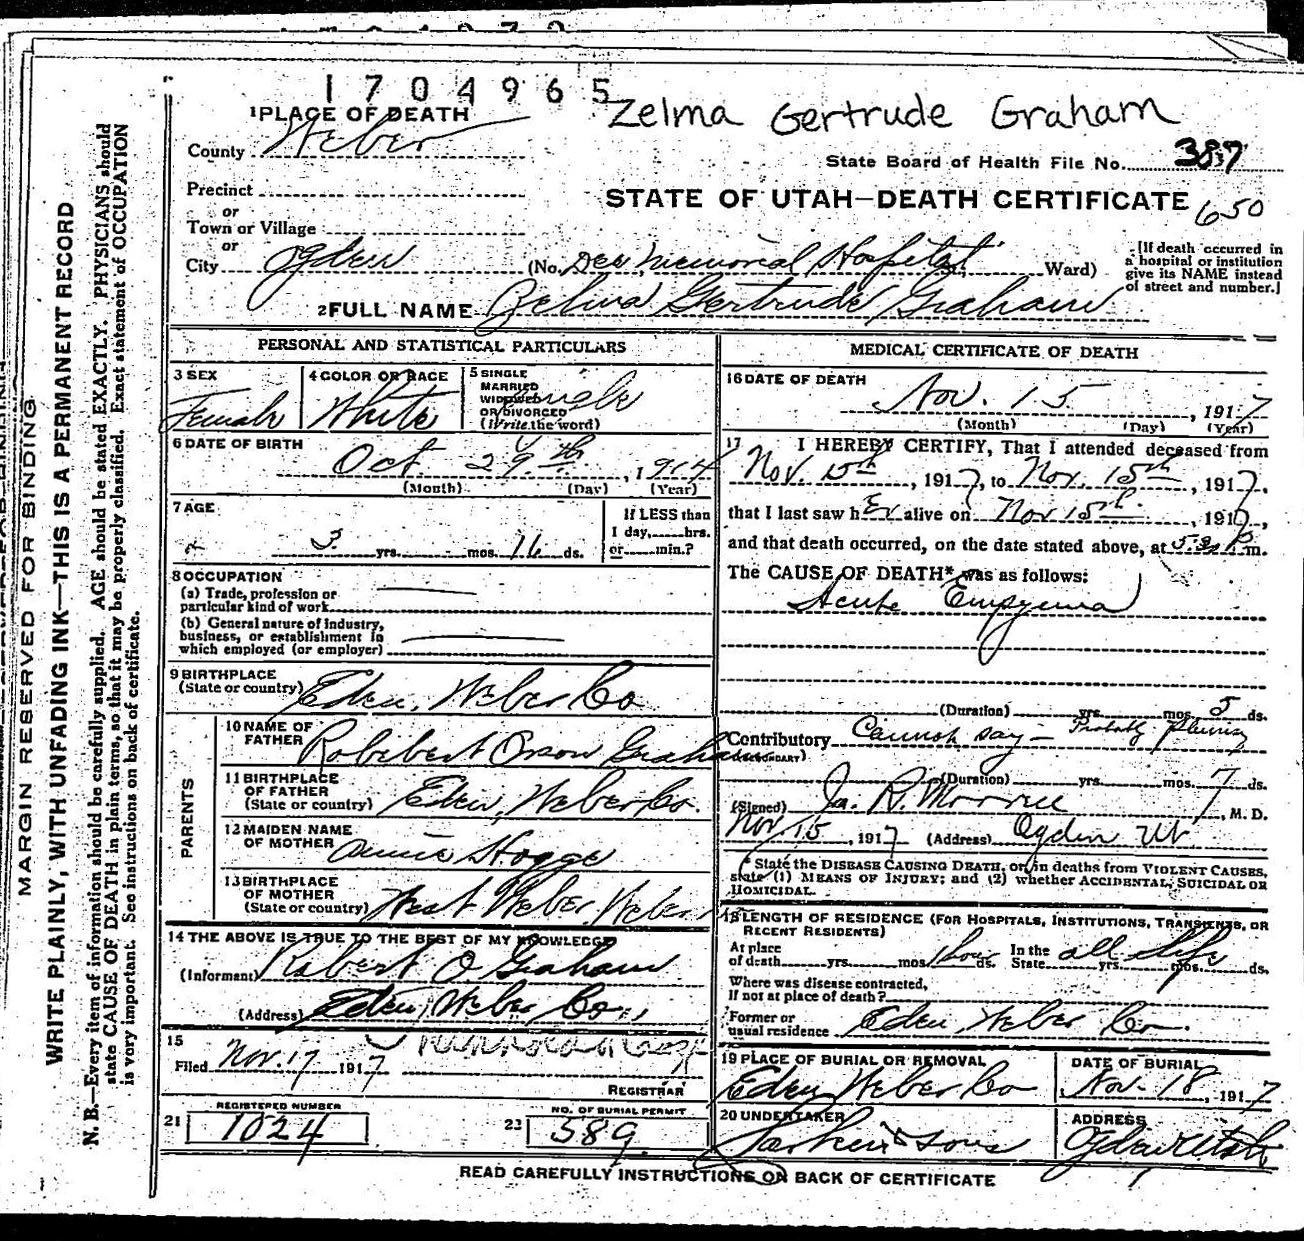 1704965
Zelma Gertrude Graham
1 PLACE OF DEATH
County Weber
State Board of Health File No. 387
Precinct
STATE OF UTAH—DEATH CERTIFICATE 650
or
Town or Village
or
City Ogden (No. Dee Memorial Hospital Ward)
[If death occurred in
a hospital or institution
give its NAME instead
of street and number.]
2 FULL NAME Zelma Gertrude Graham
PERSONAL AND STATISTICAL PARTICULARS
3 SEX
Female
4 COLOR OR RACE
White
5 SINGLE
MARRIED
WIDOWED
OR DIVORCED
(Write the word)
Single
6 DATE OF BIRTH
Oct. 29th, 1914
(Month) (Day) (Year)
7 AGE
3 yrs. mos. 16 ds.
If LESS than
1 day, hrs.
or min.?
8 OCCUPATION
(a) Trade, profession or
particular kind of work
(b) General nature of industry,
business, or establishment in
which employed (or employer)
9 BIRTHPLACE
(State or country) Eden, Weber Co
PARENTS
10 NAME OF
FATHER Robibert Orson Graham
11 BIRTHPLACE
OF FATHER
(State or country) Eden, Weber Co.
12 MAIDEN NAME
OF MOTHER Annie Hogge
13 BIRTHPLACE
OF MOTHER
(State or country) West Weber, Weber
14 THE ABOVE IS TRUE TO THE BEST OF MY KNOWLEDGE
(Informant) Robert O Graham
(Address) Eden, Weber Co.,
15
Filed Nov. 17 1917
REGISTRAR
21 REGISTERED NUMBER
1024
22 NO. OF BURIAL PERMIT
589
MEDICAL CERTIFICATE OF DEATH
16 DATE OF DEATH
Nov. 15, 1917
(Month) (Day) (Year)
17 I HEREBY CERTIFY, That I attended deceased from
Nov. 15th, 1917, to Nov. 15th, 1917,
that I last saw her alive on Nov 15th, 1917,
and that death occurred, on the date stated above, at P m.
The CAUSE OF DEATH* was as follows:
Acute Empyema
(Duration) yrs. mos. 5 ds.
Contributory Cannot say— Probably pleurisy
(SECONDARY)
(Duration) yrs. mos. 7 ds.
(Signed) Jo. R. Morrell, M. D.
Nov 15, 1917 (Address) Ogden Ut
* State the DISEASE CAUSING DEATH, or, in deaths from VIOLENT CAUSES,
state (1) MEANS OF INJURY; and (2) whether ACCIDENTAL, SUICIDAL OR
HOMICIDAL.
18 LENGTH OF RESIDENCE (FOR HOSPITALS, INSTITUTIONS, TRANSIENTS, OR
RECENT RESIDENTS)
At place
of death yrs. mos. 1 hour ds. In the
State all life yrs. mos. ds.
Where was disease contracted,
If not at place of death?
Former or
usual residence Eden, Weber Co.
19 PLACE OF BURIAL OR REMOVAL
Eden Weber Co
DATE OF BURIAL
Nov. 18, 1917
20 UNDERTAKER
Larkin & Sons
ADDRESS
Ogden Utah
READ CAREFULLY INSTRUCTIONS ON BACK OF CERTIFICATE
MARGIN RESERVED FOR BINDING
WRITE PLAINLY, WITH UNFADING INK—THIS IS A PERMANENT RECORD
N. B.—Every item of information should be carefully supplied. AGE should be stated EXACTLY. PHYSICIANS should
state CAUSE OF DEATH in plain terms, so that it may be properly classified. Exact statement of OCCUPATION
is very important. See instructions on back of certificate.